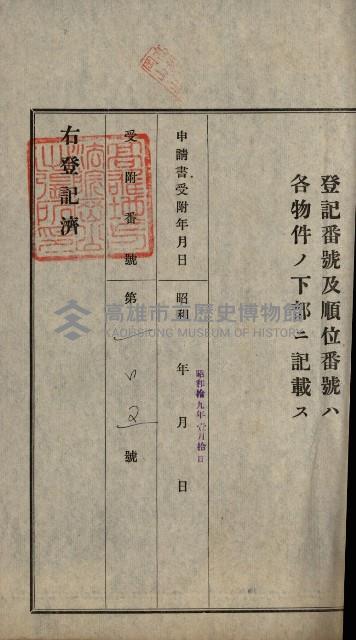 登記番號及順位番號ハ
各物件ノ下部ニ記載ス
申請書受附年月日
昭和 年 月 日
昭和拾九年壹月拾日
受附番號
第 號
右登記濟
高雄市立歷史博物館
KAOHSIUNG MUSEUM OF HISTORY